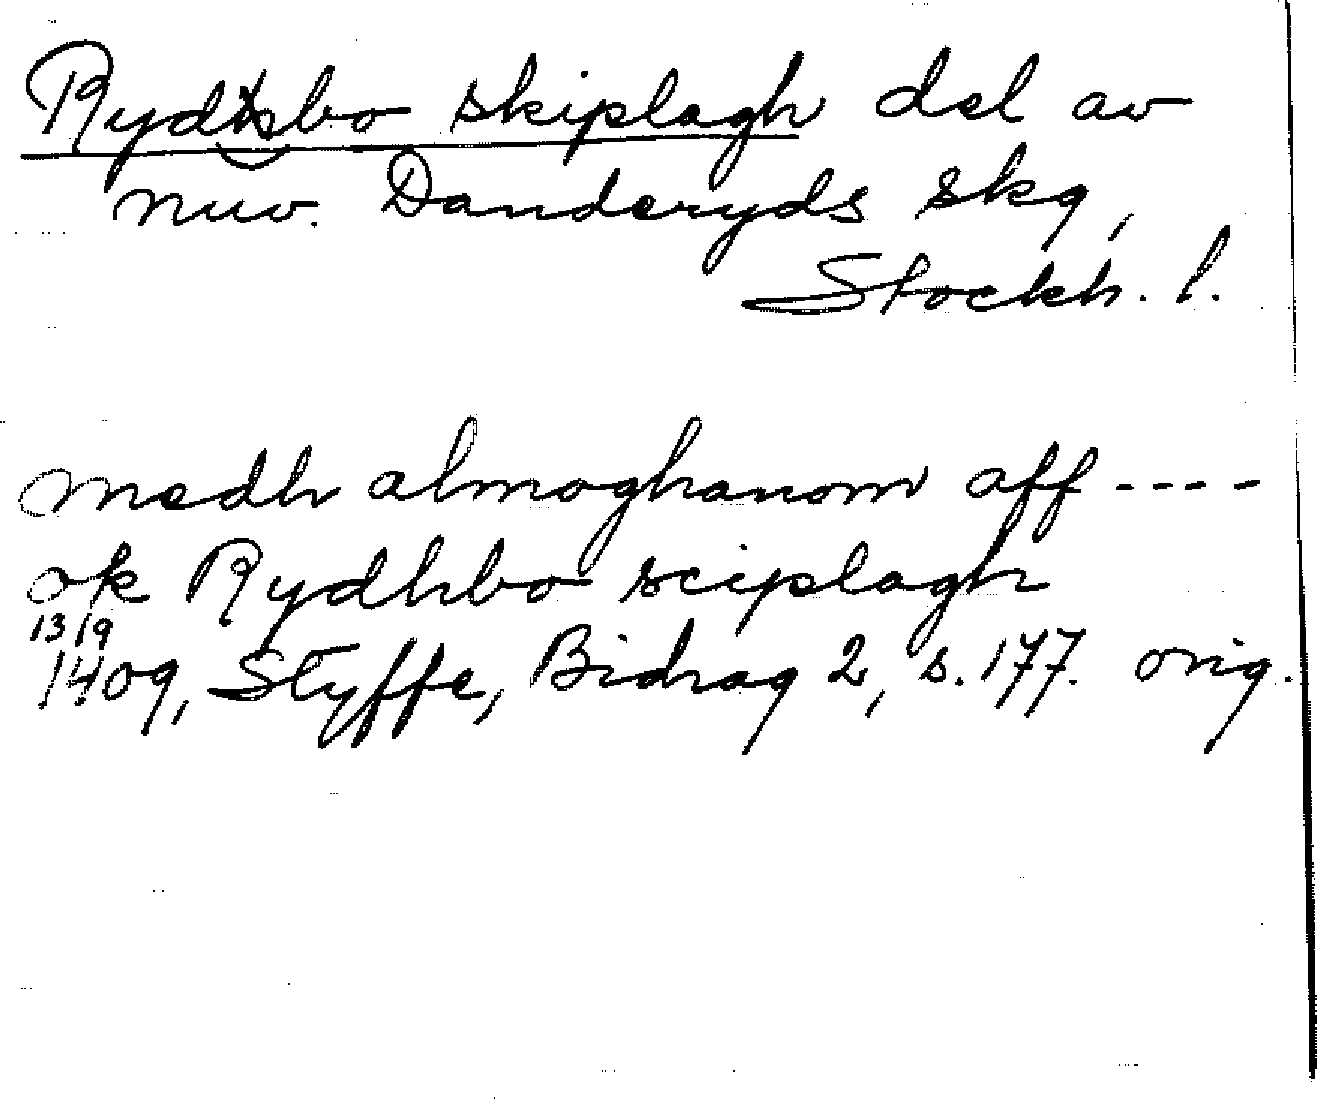 Rydsbo skiplagh del av
nuv. Danderyds skg,
Stockh. l.
medh almoghanom aff ----
ok Rydhbo sciplagh
13/9
1409, Styffe, Bidrag 2, s. 177. orig.